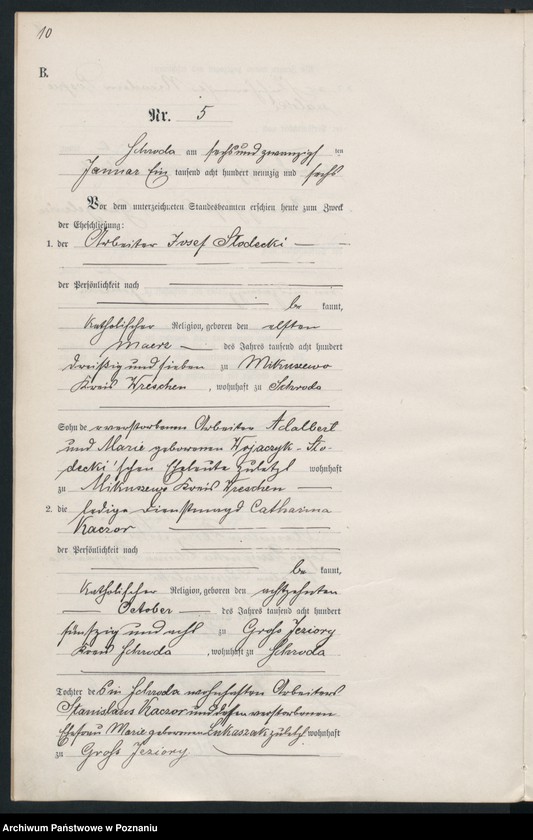 10
B.
Nr. 5
Schroda am sechsundzwanzigsten
Januar Ein tausend acht hundert neunzig und sechs
Vor dem unterzeichneten Standesbeamten erschien heute zum Zweck
der Eheschließung:
1. der Arbeiter Josef Słodecki
der Persönlichkeit nach
be kannt,
katholischer Religion, geboren den elften
Maerz des Jahres tausend acht hundert
dreißig und sieben zu Mikuszewo
Kreis Wreschen, wohnhaft zu Schroda
Sohn der verstorbenen Arbeiter Adalbert
und Marie geborenen Wojaczyk - Sło-
decki'schen Eheleute zuletzt wohnhaft
zu Mikuszewo Kreis Wreschen
2. die ledige Dienstmagd Catharina
Kaczor
der Persönlichkeit nach
be kannt,
katholischer Religion, geboren den achtzehnten
October des Jahres tausend acht hundert
fünfzig und acht zu Groß Jeziory
Kreis Schroda, wohnhaft zu Schroda
Tochter des in Schroda wohnhaften Arbeiters
Stanislaus Kaczor und dessen verstorbenen
Ehefrau Marie geborenen Łukaszak zuletzt wohnhaft
zu Groß Jeziory
Archiwum Państwowe w Poznaniu